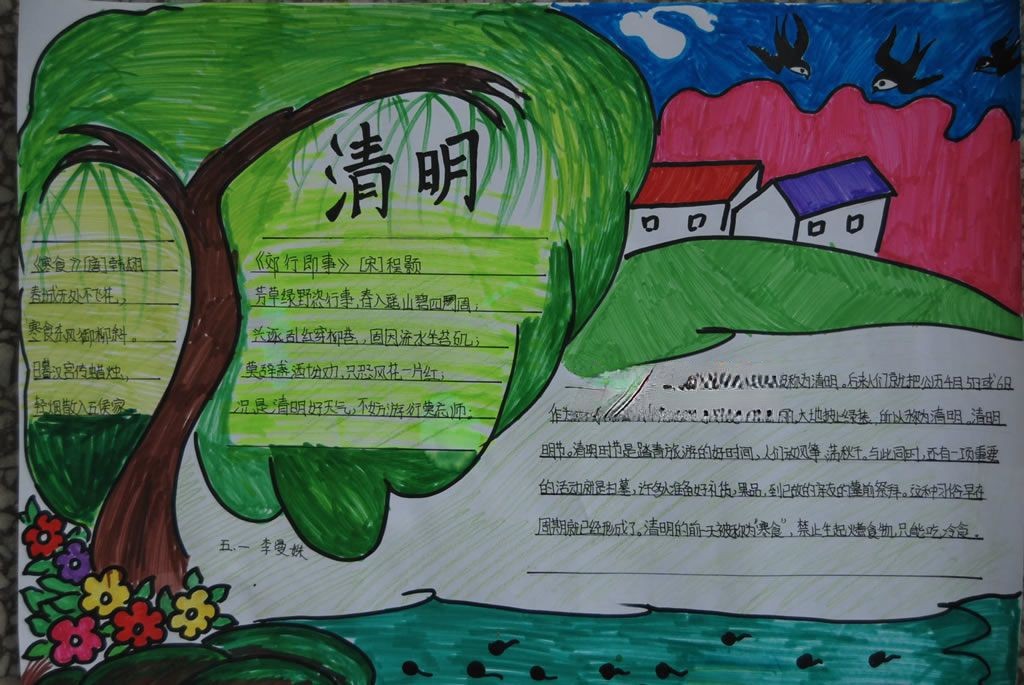 清明
《寒食》[唐]韩翃
春城无处不飞花，
寒食东风御柳斜。
日暮汉宫传蜡烛，
轻烟散入五侯家
《郊行即事》[宋]程颢
芳草绿野恣行事，春入遥山碧四周；
兴逐乱红穿柳巷，固因流水坐苔矶；
莫辞盏酒十分劝，只恐风花一片红；
况是清明好天气，不妨游衍莫忘归。
称为清明。后来人们就把公历4月5日或6日
作为 大地披上绿装，所以称为清明。清明
明节。清明时节是踏青旅游的好时间，人们放风筝，荡秋千。与此同时，还有一项重要
的活动就是扫墓，许多人准备好礼品，果品，到已故的亲友的墓前祭拜。这种习俗早在
周期就已经形成了。清明的前一天被称为“寒食”，禁止生起火煮食物，只能吃冷食。
五、一 李曼姝